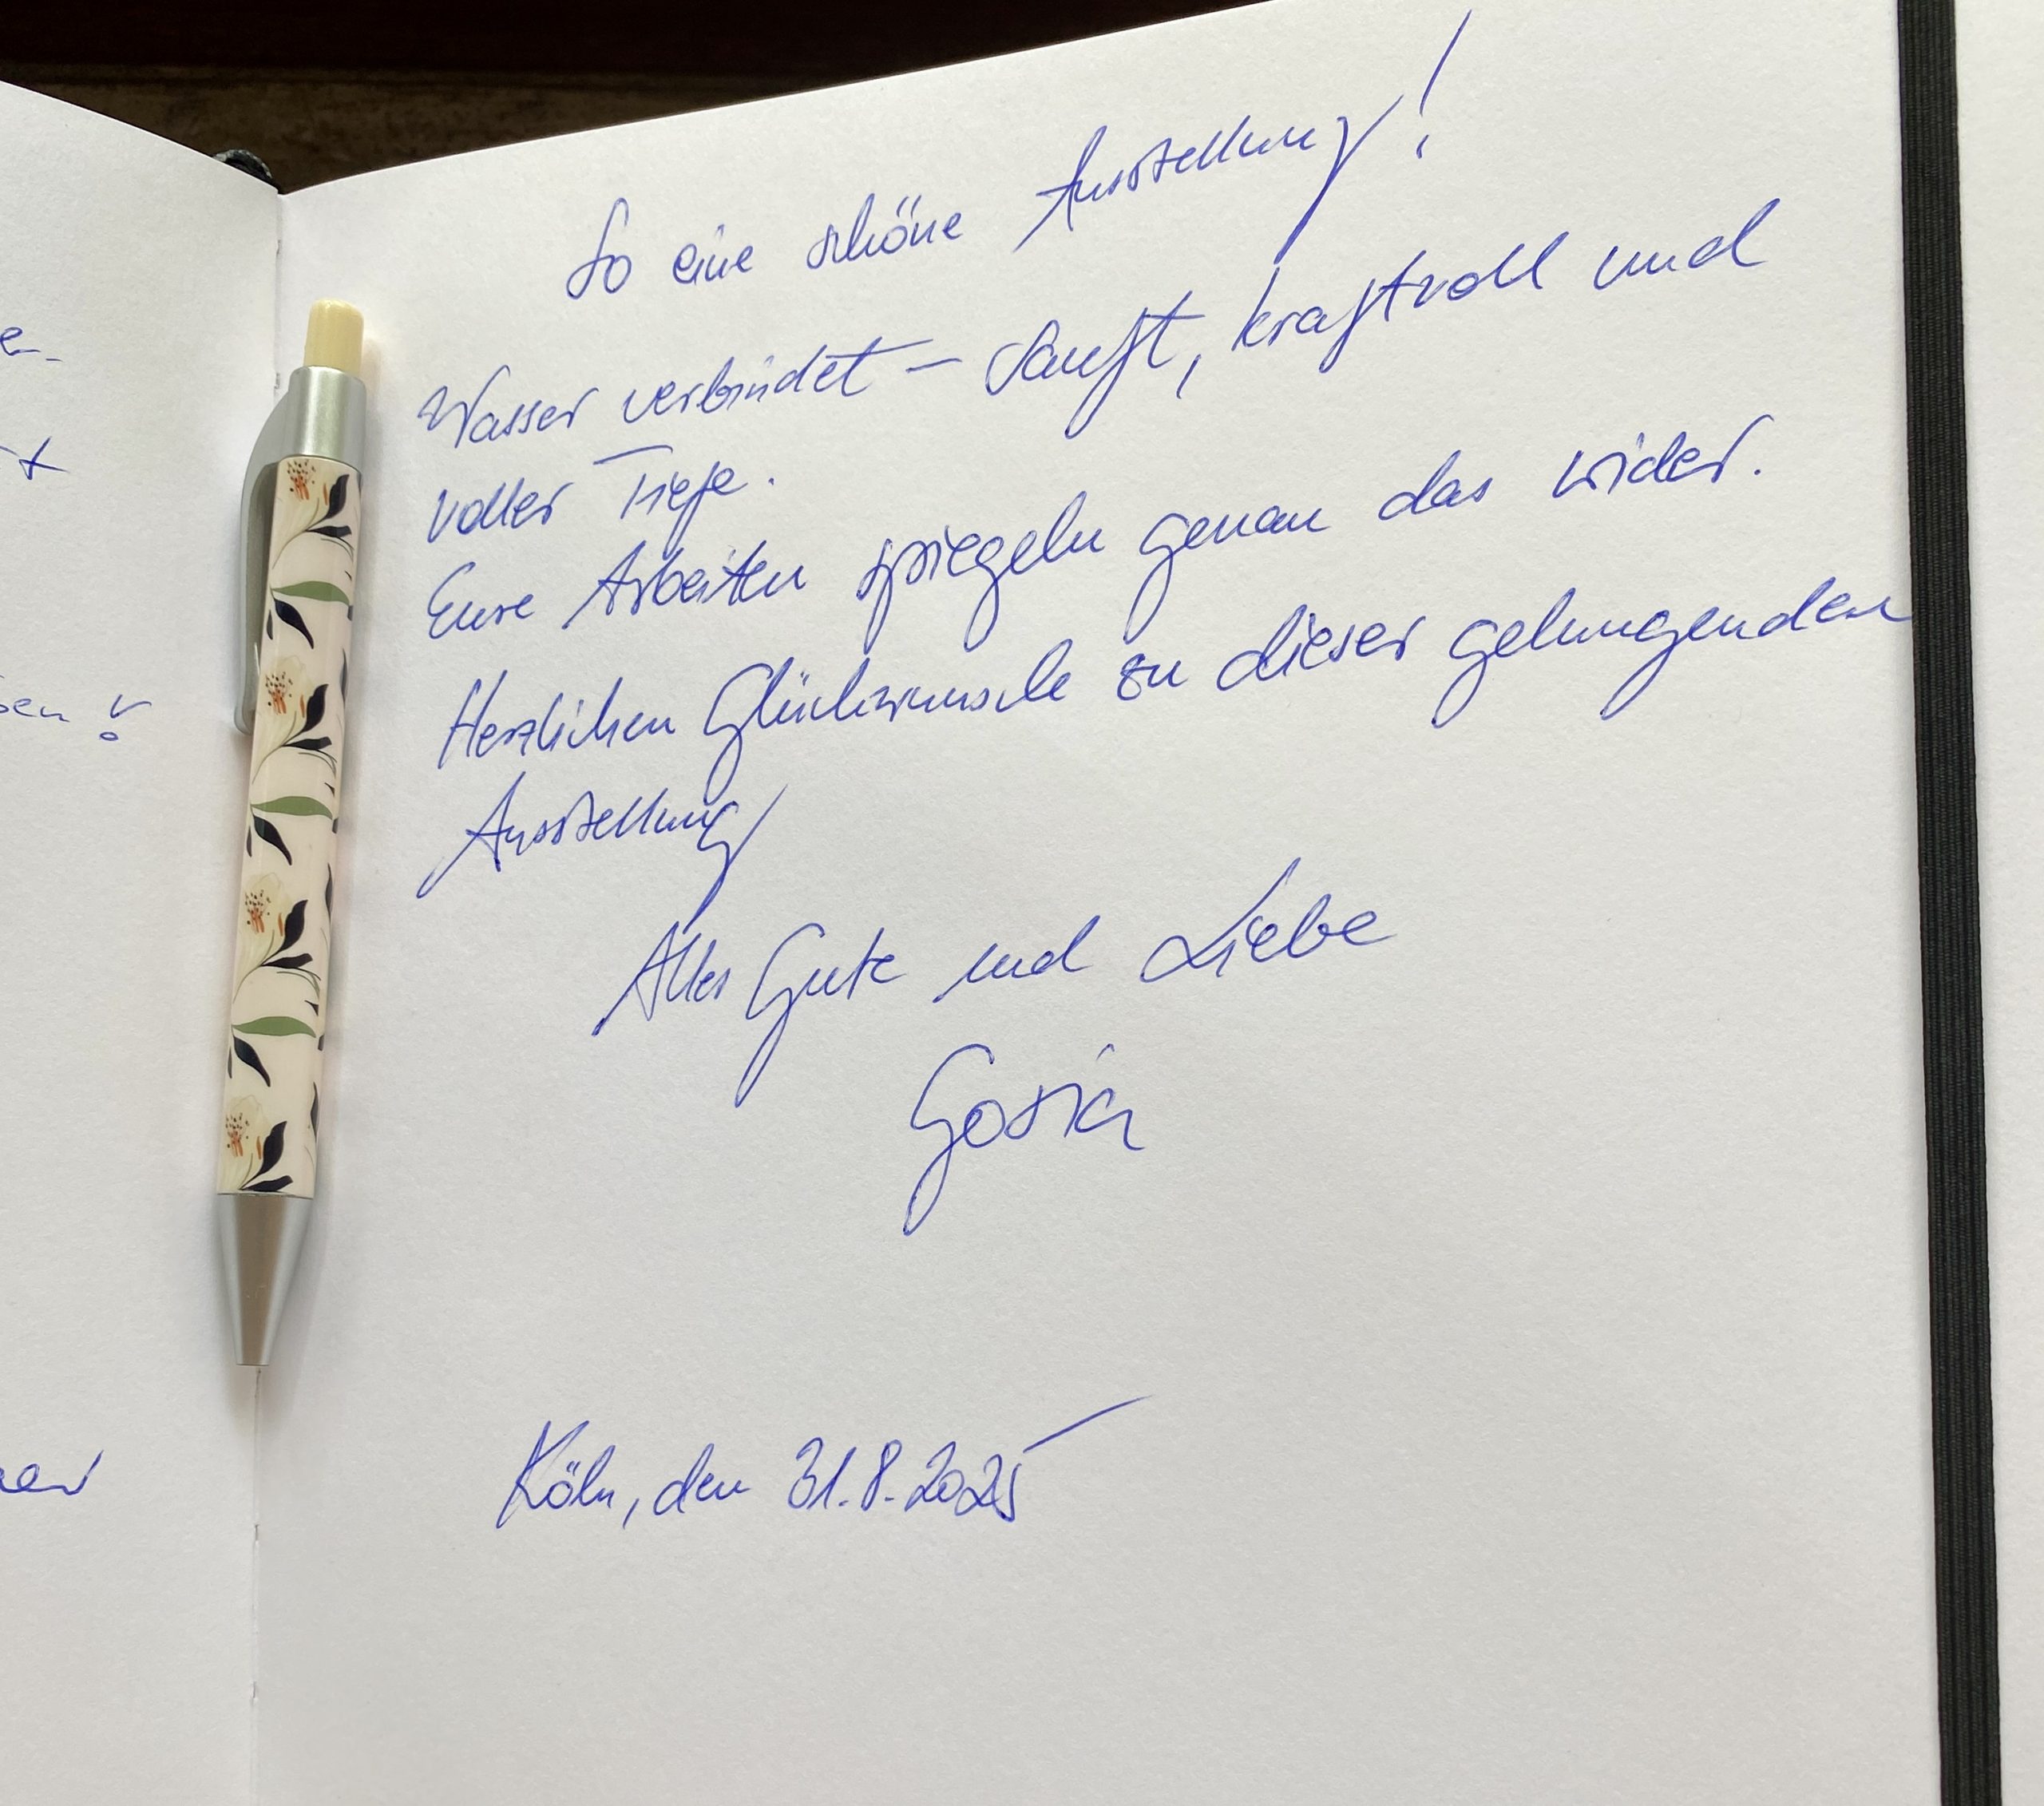 So eine schöne Ausstellung!
Wasser verbindet – sanft, kraftvoll und
voller Tiefe.
Eure Arbeiten spiegeln genau das wider.
Herzlichen Glückwunsch zu dieser gelungenden
Ausstellung
Alles Gute und Liebe
Gosia
Köln, den 31.8.2025